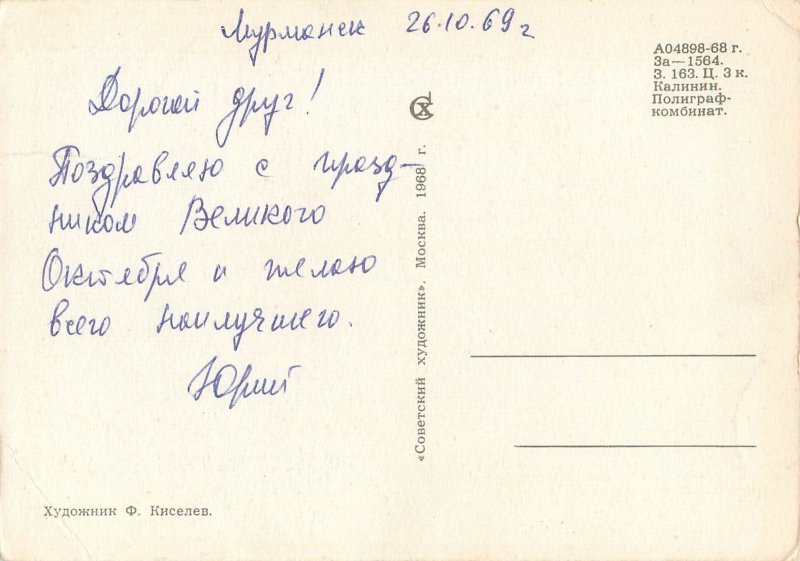 Мурманск 26.10.69 г
Дорогой друг!
Поздравляю с празд-
ником Великого
Октября и желаю
всего наилучшего.
Юрий
А04898-68 г.
За—1564.
З. 163. Ц. 3 к.
Калинин.
Полиграф-
комбинат.
«Советский художник». Москва. 1968 г.
Художник Ф. Киселев.